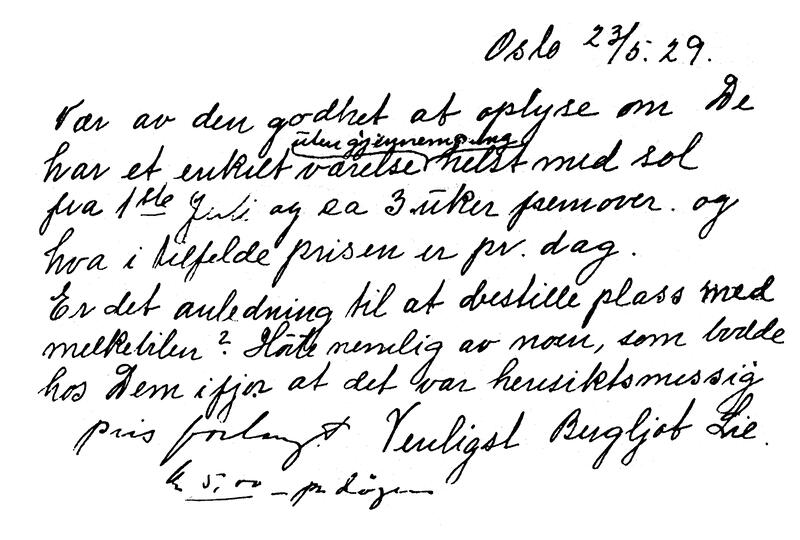 Oslo 23/5. 29.
Vær av den godhet at oplyse om De
uten gjennemgang
har et enkelt værelse helst med sol
fra 1ste Juli og ca 3 uker fremover. og
hva i tilfelde prisen er pr. dag.
Er det anledning til at bestille plass med
melkebilen? Hørte nemlig av noen, som bodde
hos Dem ifjor at det var hensiktsmessig
pris forlangt Venligst Bergljot Lie.
kr 5,00 – pr døgn